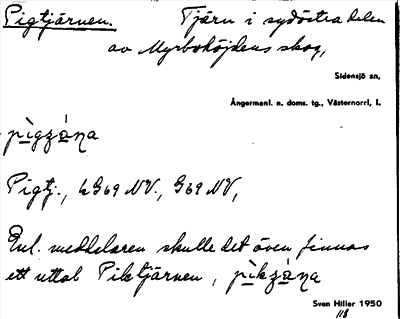 Pigtjärnen. Tjärn i sydöstra delen
av Myrbohöjdens skog,
Sidensjö sn,
Ångermanl. n. doms. tg., Västernorrl. l.
pìgzàṇa
Pigtj., bG69 NV., G69 NV,
Enl. meddelaren skulle det även finnas
ett uttal Piktjärnen, pìkzàṇa
Sven Hiller 1950
118